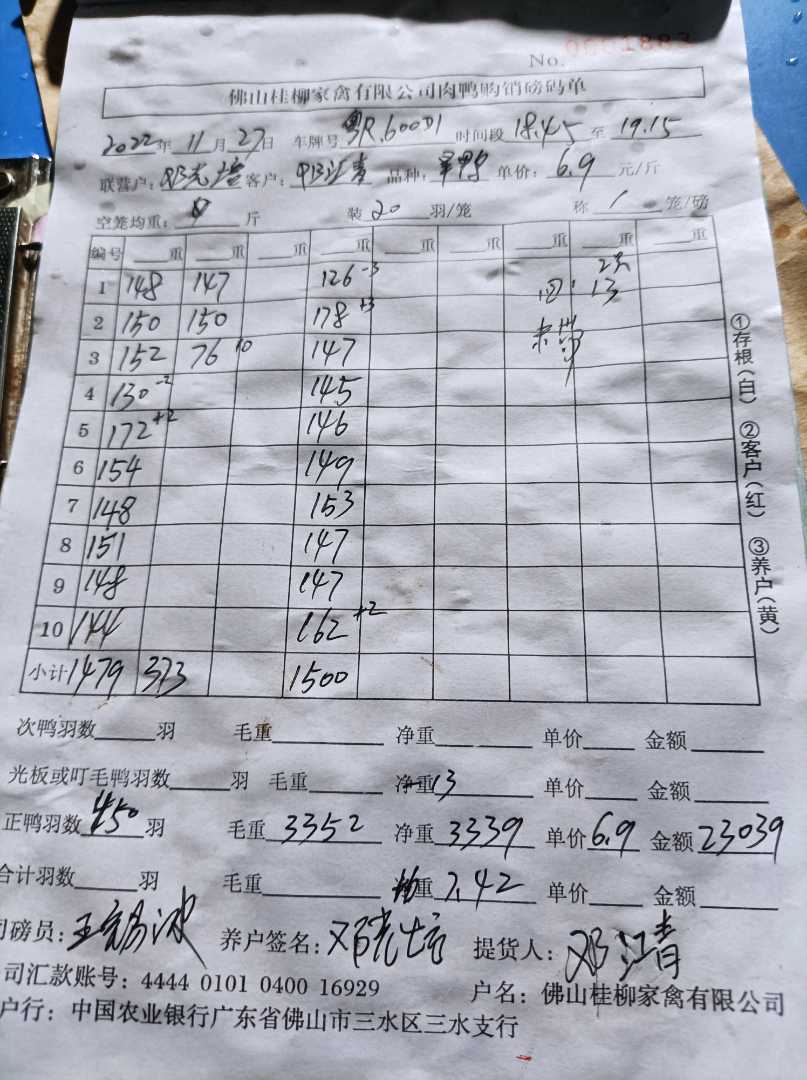 No. 0001883
佛山桂柳家禽有限公司肉鸭购销磅码单
2022年 11月 27日 车牌号 粤R.600D1 时间段 18.45 至 19.15
联营户: 邓光培 客户: 邓江青 品种: 单价: 6.9 元/斤
空笼均重: 斤 装 20 羽/笼 称 1 笼/磅
编号 重 重 重 重 重 重 重 重 重
1 148 147 126 -3 13
2 150 150 178 +3
3 152 76 10 147
4 130 -2 145
5 172 +2 146
6 154 149
7 148 153
8 151 147
9 148 147
10 144 162 +2
小计 1479 373 1500
①存根(白) ②客户(红) ③养户(黄)
次鸭羽数 羽 毛重 净重 单价 金额
光板或叮毛鸭羽数 羽 毛重 净重 13 单价 金额
正鸭羽数 450 羽 毛重 3352 净重 3339 单价 6.9 金额 23039
合计羽数 羽 毛重 重 7.42 单价 金额
司磅员: 养户签名: 邓光培 提货人: 邓江青
司汇款账号: 4444 0101 0400 16929 户名: 佛山桂柳家禽有限公司
户行: 中国农业银行广东省佛山市三水区三水支行